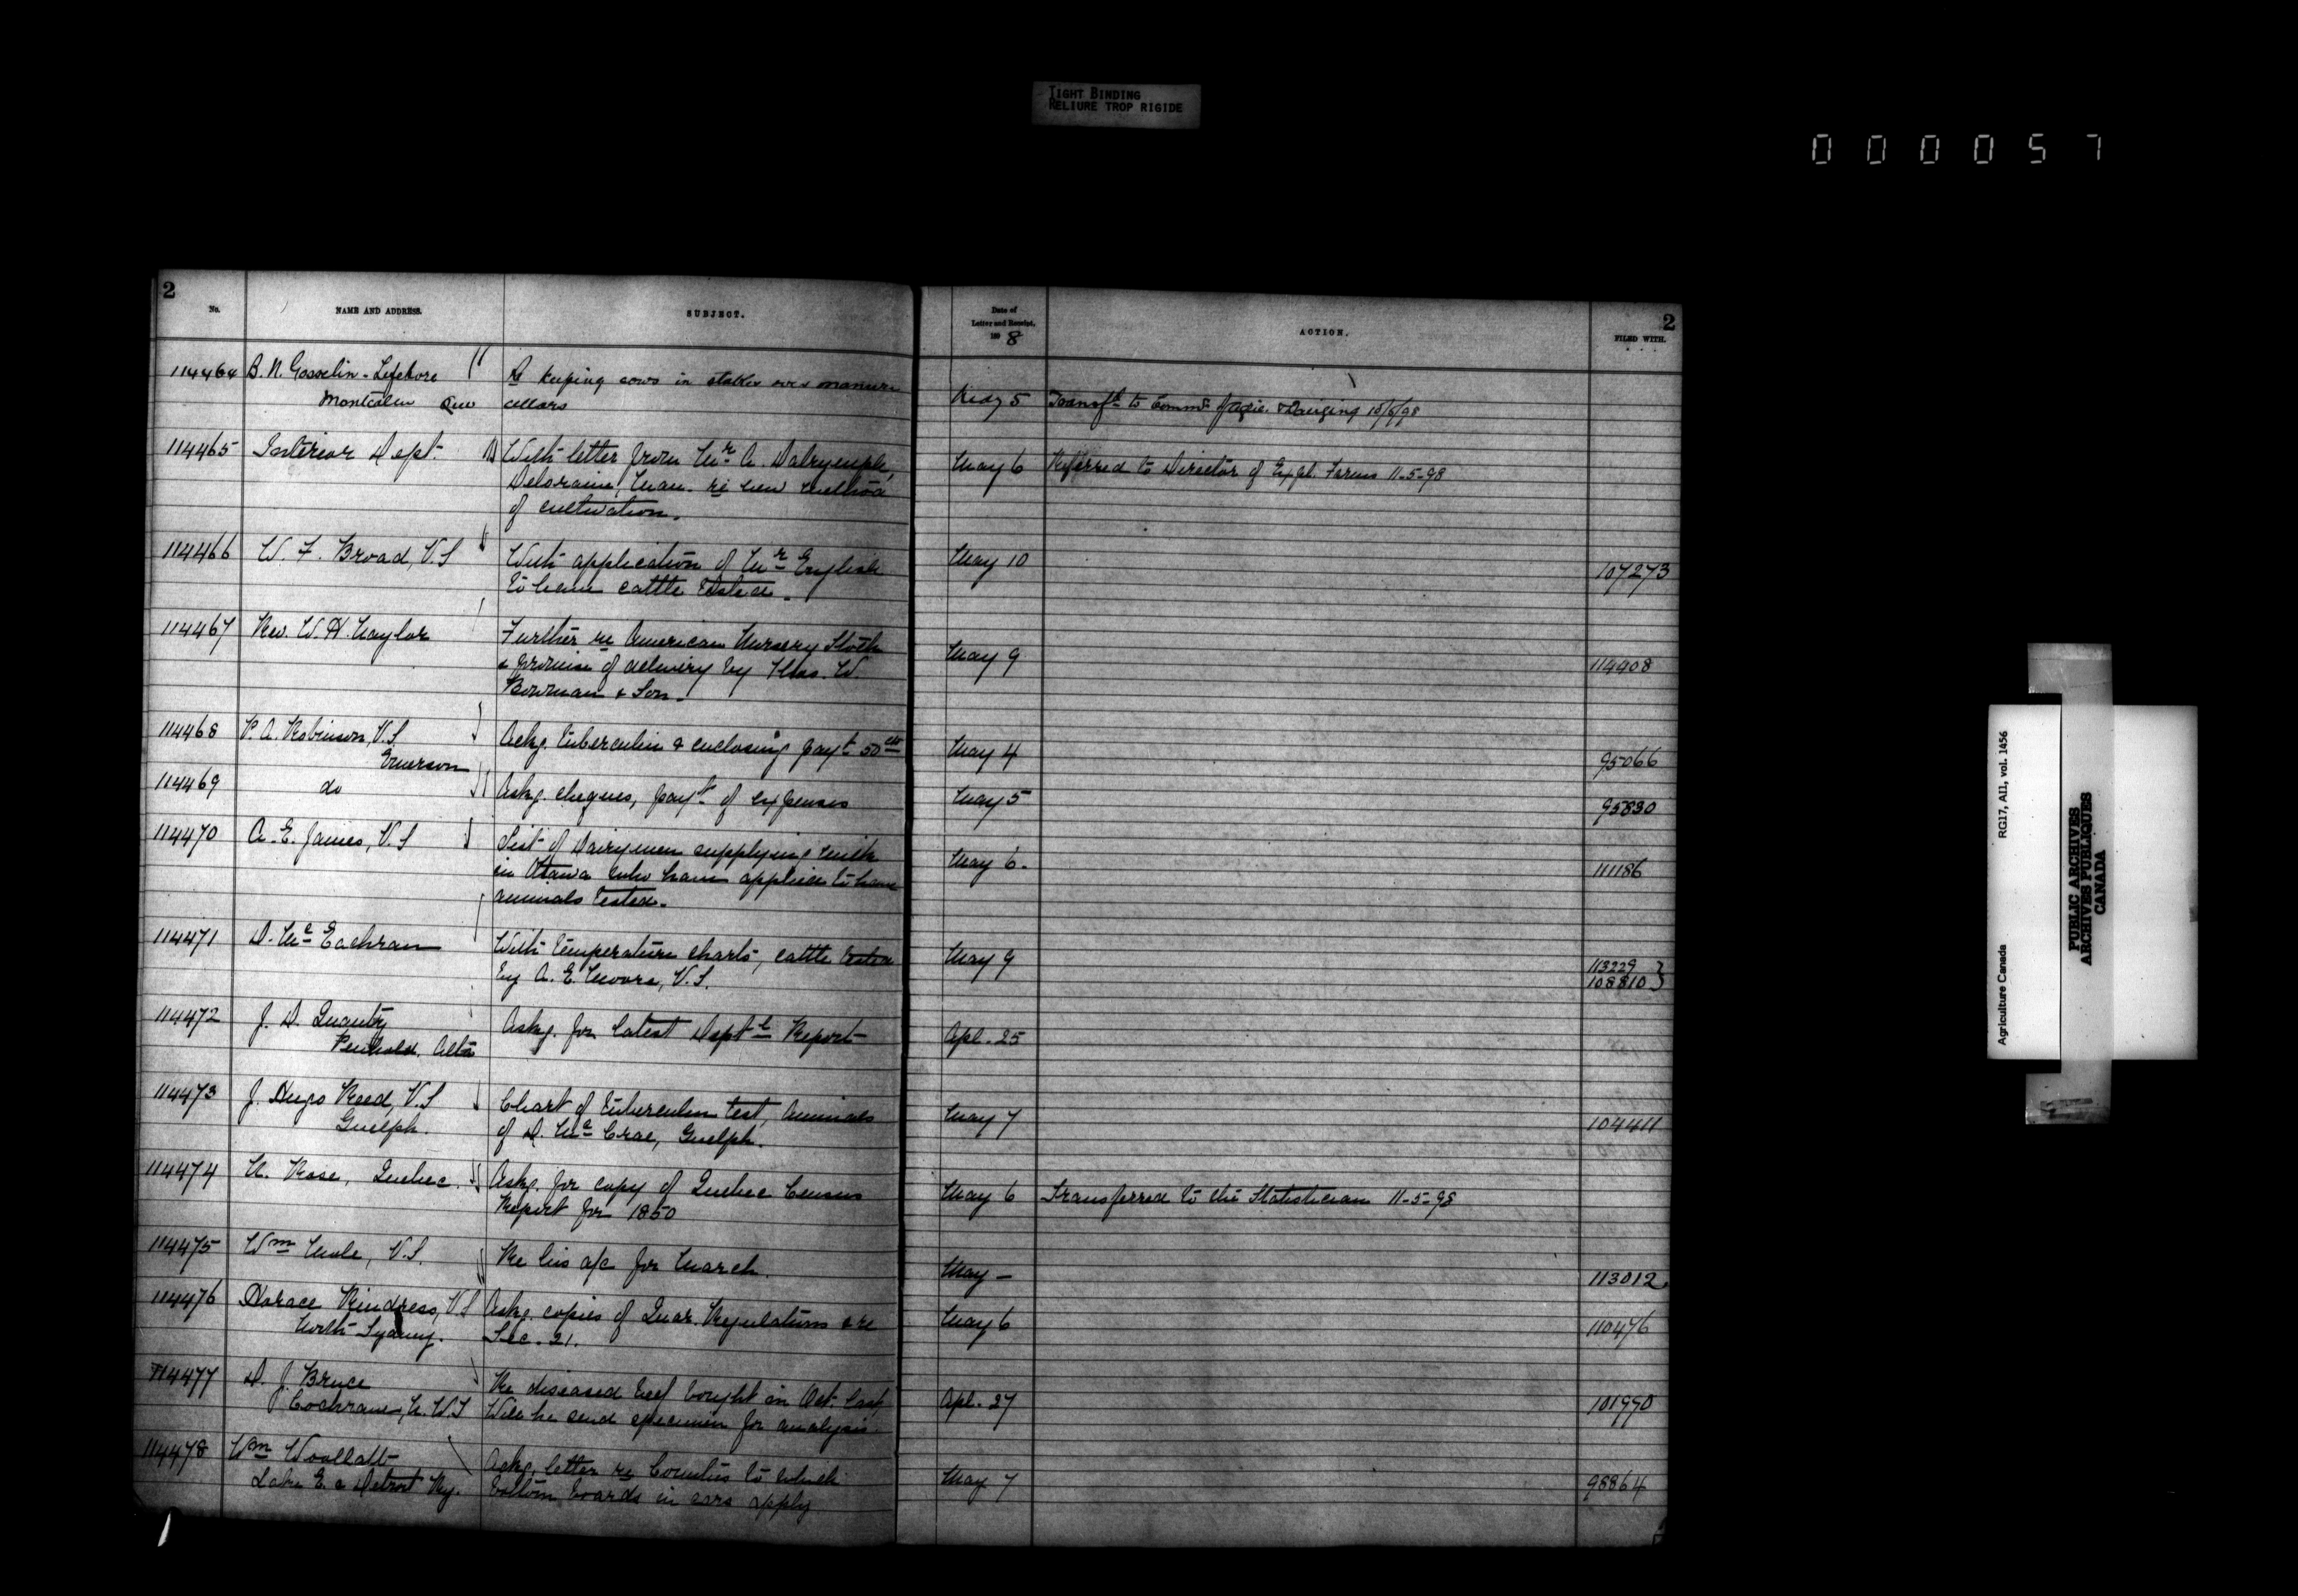 TIGHT BINDING
RELIURE TROP RIGIDE
000057
2
No. NAME AND ADDRESS. SUBJECT. Date of Letter and Receipt, 1898 ACTION. FILED WITH. 2
114464 B. N. Gosselin-Lefebvre Re keeping cows in stables over manure
Montcalm Que cellars May 5 Transfd to Commr Agric. & Dairying 10/5/98
114465 Interior Dept. With letter from Mr A. Dalrymple, May 6 Referred to Director of Expl. Farms 11-5-98
Deloraine, Man. re new method
of cultivation.
114466 W. F. Broad, V.S With application of Mr English May 10 107273
to have cattle tested.
114467 Rev. W. H. Naylor Further re American Nursery Stock
& promise of delivery by Thos. W. May 9 114408
Bowman & Son.
114468 P. A. Robinson, V.S. Ackg. tuberculin & enclosing payt 50 cts May 4 95066
Emerson
114469 do Ackg. cheques, payt of expenses May 5 95830
114470 A. E. James, V.S List of Dairymen supplying milk
in Ottawa who have applied to have May 6. 111186
animals tested.
114471 D. Mc Eachran With temperature charts, cattle tested May 9 113229
by A. E. Moore, V.S. 108810
114472 J. D. Quantz Askg. for latest Deptl Report Apl. 25
Penhold, Alta
114473 J. Hugo Reed, V.S Chart of tuberculin test, animals May 7
Guelph. of D. Mc Crae, Guelph. 104411
114474 N. Rose, Quebec. Askg. for copy of Quebec Census May 6 Transferred to the Statistician 11-5-98
Report for 1850
114475 Wm Mole, V.S. Re his a/c for March. May - 113012.
114476 Horace Rindress, V.S Askg. copies of Quar. Regulations & re May 6 110476
North Sydney. Sec. 21.
114477 D. J. Bruce Re diseased beef bought in Oct. last,
Cochrane, N.W.T Will he send specimen for analysis. Apl. 27 101990
114478 Wm Woollatt Ackg. letter re Counties to which
Lake E. & Detroit Ry. bottom boards in cars apply May 7 98864
Agriculture Canada RG17, AII, vol. 1456
PUBLIC ARCHIVES
ARCHIVES PUBLIQUES
CANADA